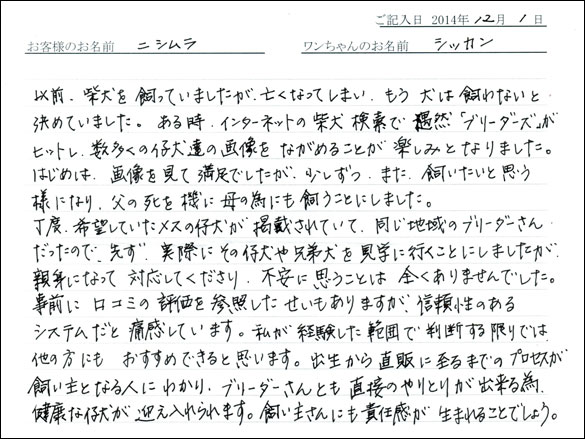 ご記入日 2014年 12月 1日
お客様のお名前 ニシムラ ワンちゃんのお名前 シッカン
以前、柴犬を飼っていましたが、亡くなってしまい、もう犬は飼わないと
決めていました。ある時、インターネットの柴犬検索で偶然「ブリーダーズ」が
ヒットし、数多くの仔犬達の画像をながめることが楽しみとなりました。
はじめは、画像を見て満足でしたが、少しずつ、また、飼いたいと思う
様になり、父の死を機に母の為にも飼うことにしました。
丁度、希望していたメスの仔犬が掲載されていて、同じ地域のブリーダーさん
だったので、先ず、実際にその仔犬や兄弟犬を見学に行くことにしましたが、
親身になって対応してくださり、不安に思うことは全くありませんでした。
事前に口コミの評価を参照したせいもありますが、信頼性のある
システムだと痛感しています。私が経験した範囲で判断する限りでは、
他の方にもおすすめできると思います。出生から直販に至るまでのプロセスが
飼い主となる人にわかり、ブリーダーさんとも直接のやりとりが出来る為、
健康な仔犬が迎え入れられます。飼い主さんにも責任感が生まれることでしょう。